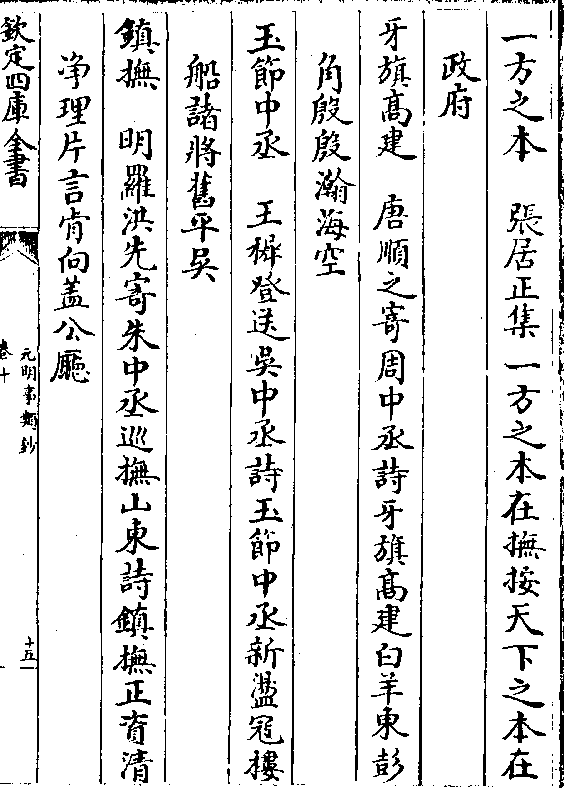 一方之本　張居正集一方之本在撫按天下之本在
政府
牙旗髙建　唐順之寄周中丞詩牙旗髙建白羊東彭
角殷殷瀚海空
玉節中丞　王穉登送吳中丞詩玉節中丞新盪冦樓
船諸將舊平吳
鎮撫　明羅洪先寄朱中丞巡撫山東詩鎮撫正資清
淨理片言肯向蓋公廳
欽定四庫全書
元明事類鈔
卷十
十五